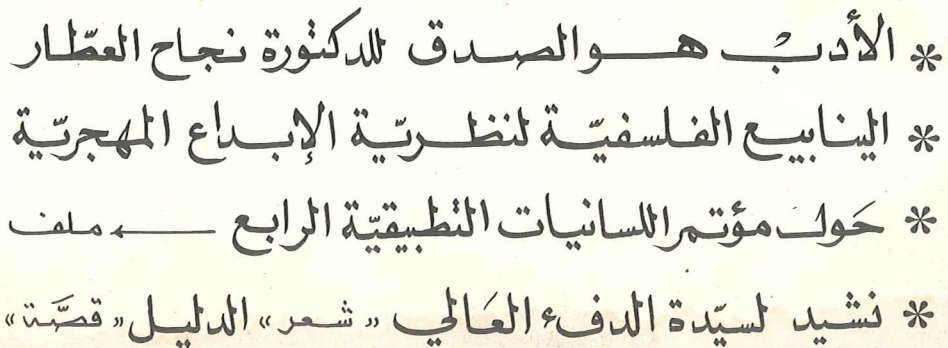 * الأدب هو الصدق للدكتورة نجاح العطّار
* الينابيع الفلسفيّة لنظريّة الإبداع المهجريّة
* حَول مؤتمر اللسانيات التطبيقيّة الرابع ← ملف
* نشيد لسيّدة الدفء العَالي «شعر» الدليل «قصَّة»